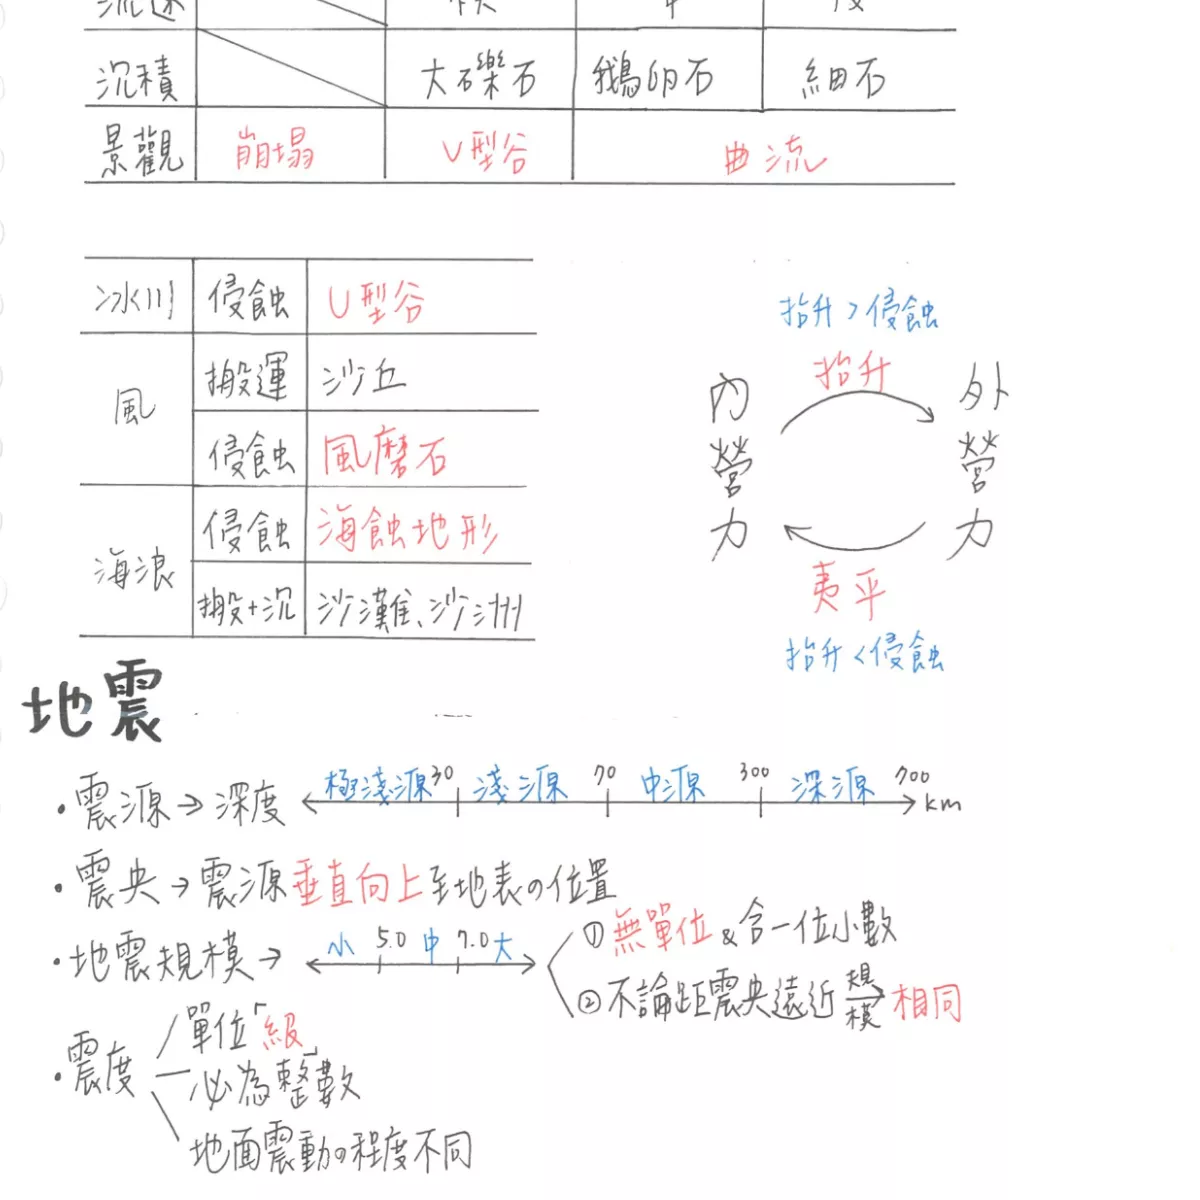 流速 快 中 慢
沉積 大礫石 鵝卵石 細石
景觀 崩塌 V型谷 曲流
冰川 侵蝕 U型谷
風 搬運 沙丘
侵蝕 風磨石
海浪 侵蝕 海蝕地形
搬+沉 沙灘、沙洲
抬升>侵蝕
抬升
內營力 外營力
夷平
抬升<侵蝕
地震
·震源→深度 極淺源 30 淺源 70 中源 300 深源 700 km
·震央→震源垂直向上至地表の位置
·地震規模→ 小 5.0 中 7.0 大
①無單位&含一位小數
②不論距震央遠近 規模 相同
·震度
單位「級」
必為整數
地面震動の程度不同